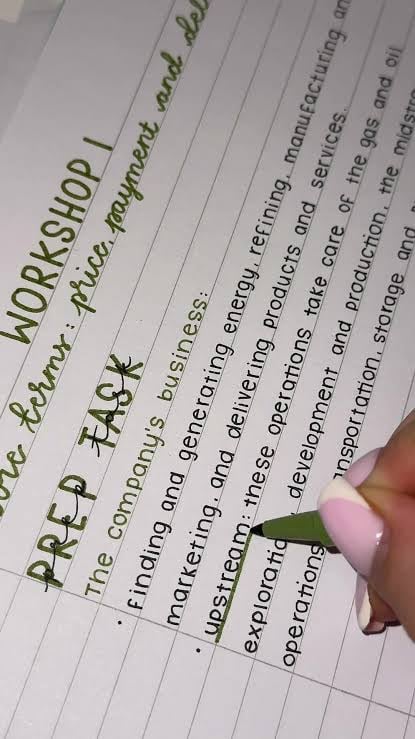 WORKSHOP 1
terms: price, payment and
PREP TASK
prep task
The company's business:
• finding and generating energy, refining, manufacturing
marketing, and delivering products and services.
• upstream: these operations take care of the gas and oil
development and production, the
operations storage and